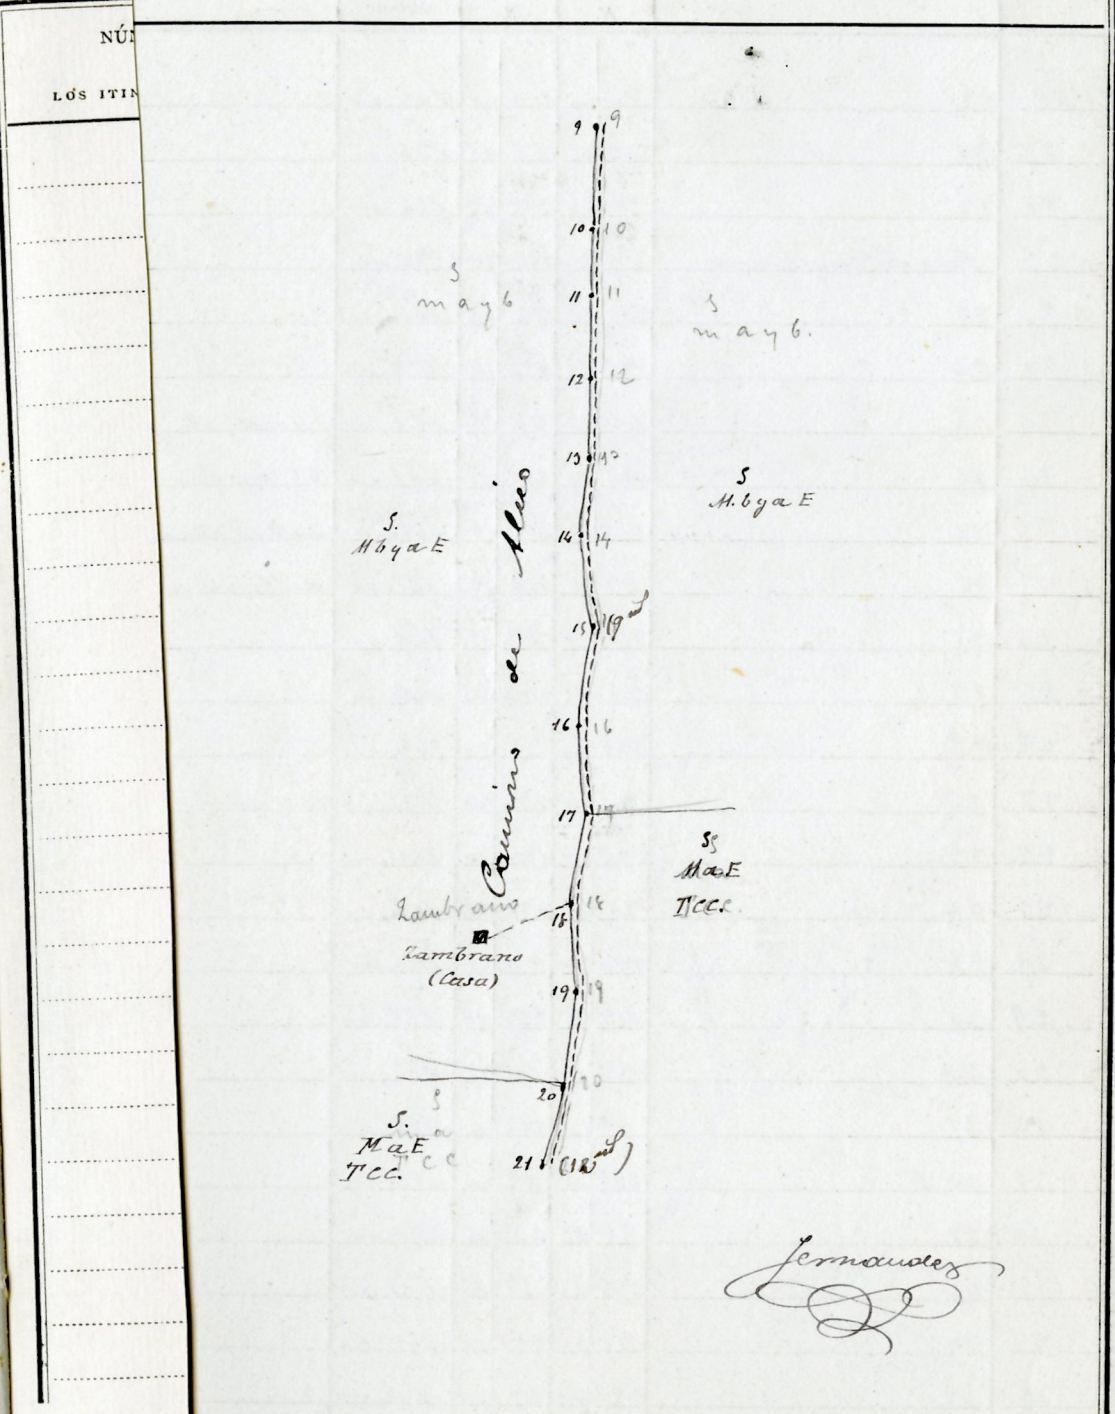 NÚ
LOS ITIN
9 9
10 10
S
m a y b
11 11
S
m a y b.
12 12
13 13
S
M. b y a E
S.
M b y a E
14 14
Camino de
15
16 16
17 17
S
M a E
T C C.
Zambrano
18 18
Zambrano
(Casa)
19 19
20 20
S
m a
T C C
S.
M a E
T C C.
21
Fernandez